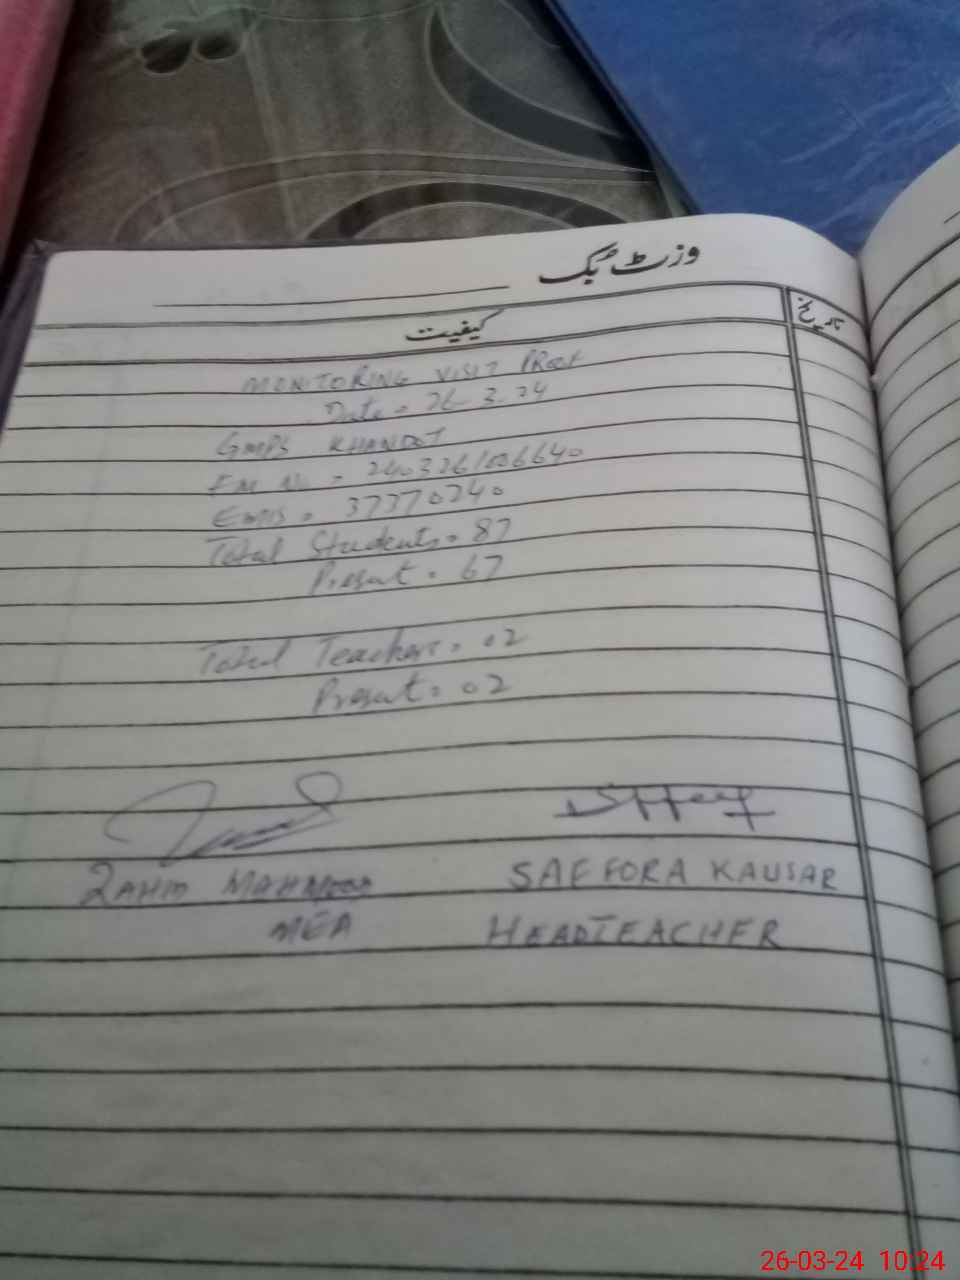 وزٹ بک
تاریخ
کیفیت
MONITORING VISIT PROOF
Date = 26-3-24
GMPS KHANDOT
FM No = 240326/006640
EMIS = 37370240
Total Students = 87
Present = 67
Total Teachers = 02
Present = 02
ZAHID MAHMOOD
SAEFORA KAUSAR
MEA
HEADTEACHER
26-03-24 10:24